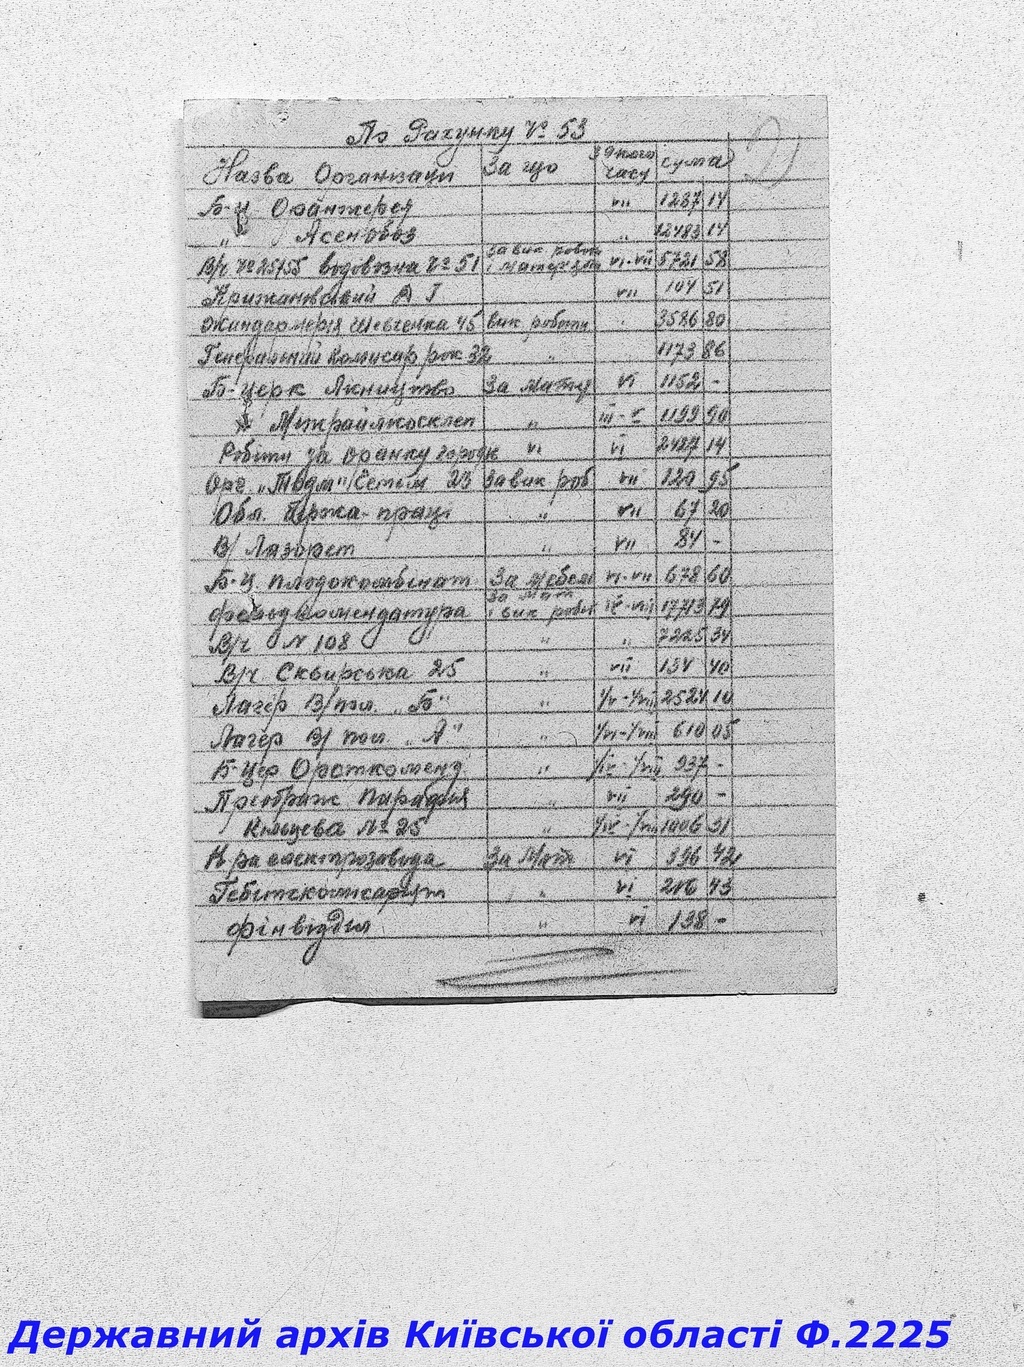 По Рахунку № 53
Назва Організації За що З якого часу сума
Б-Ц Оранжерея VII 1237 14
" Асенобоз " 12483 14
В/ч № 25155 водовозна № 51 За вик роботи і матеріали VI-VII 5721 58
Крижанівський А І VII 104 51
Жандармерія Шевченка 45 вик роботи " 3586 80
Генеральний Комисар рок 32 " 1173 86
Б-церк Лісництво За матер VI 1152 -
" Міжрайлісосклеп " III-V 1199 90
Роботи за оранку город " VI 2487 14
Орг. "Тодт" 23 За вик роб VII 120 95
Обл. Біржа праці " VII 67 20
В/ Лазарет " VII 84 -
Б-Ц плодокомбінат За мебель VI-VII 678 60
Фельдкомендатура За мат і вик робіт 17713 79
В/ч N 108 " " 7225 34
В/ч Сквирська 25 " VII 134 40
Лагер В/пол. "Б" " 2524 10
Лагер В/пол. "А" " VI-VIII 610 05
Б-Цер Ортскоменд. " 937 -
Преображ Парафія " VII 290 -
Кільцева № 25 " 1006 31
За Мат VI 396 42
Гебітскомісаріат " VI 43
фінвідділ " VI 138 -
Державний архів Київської області Ф.2225